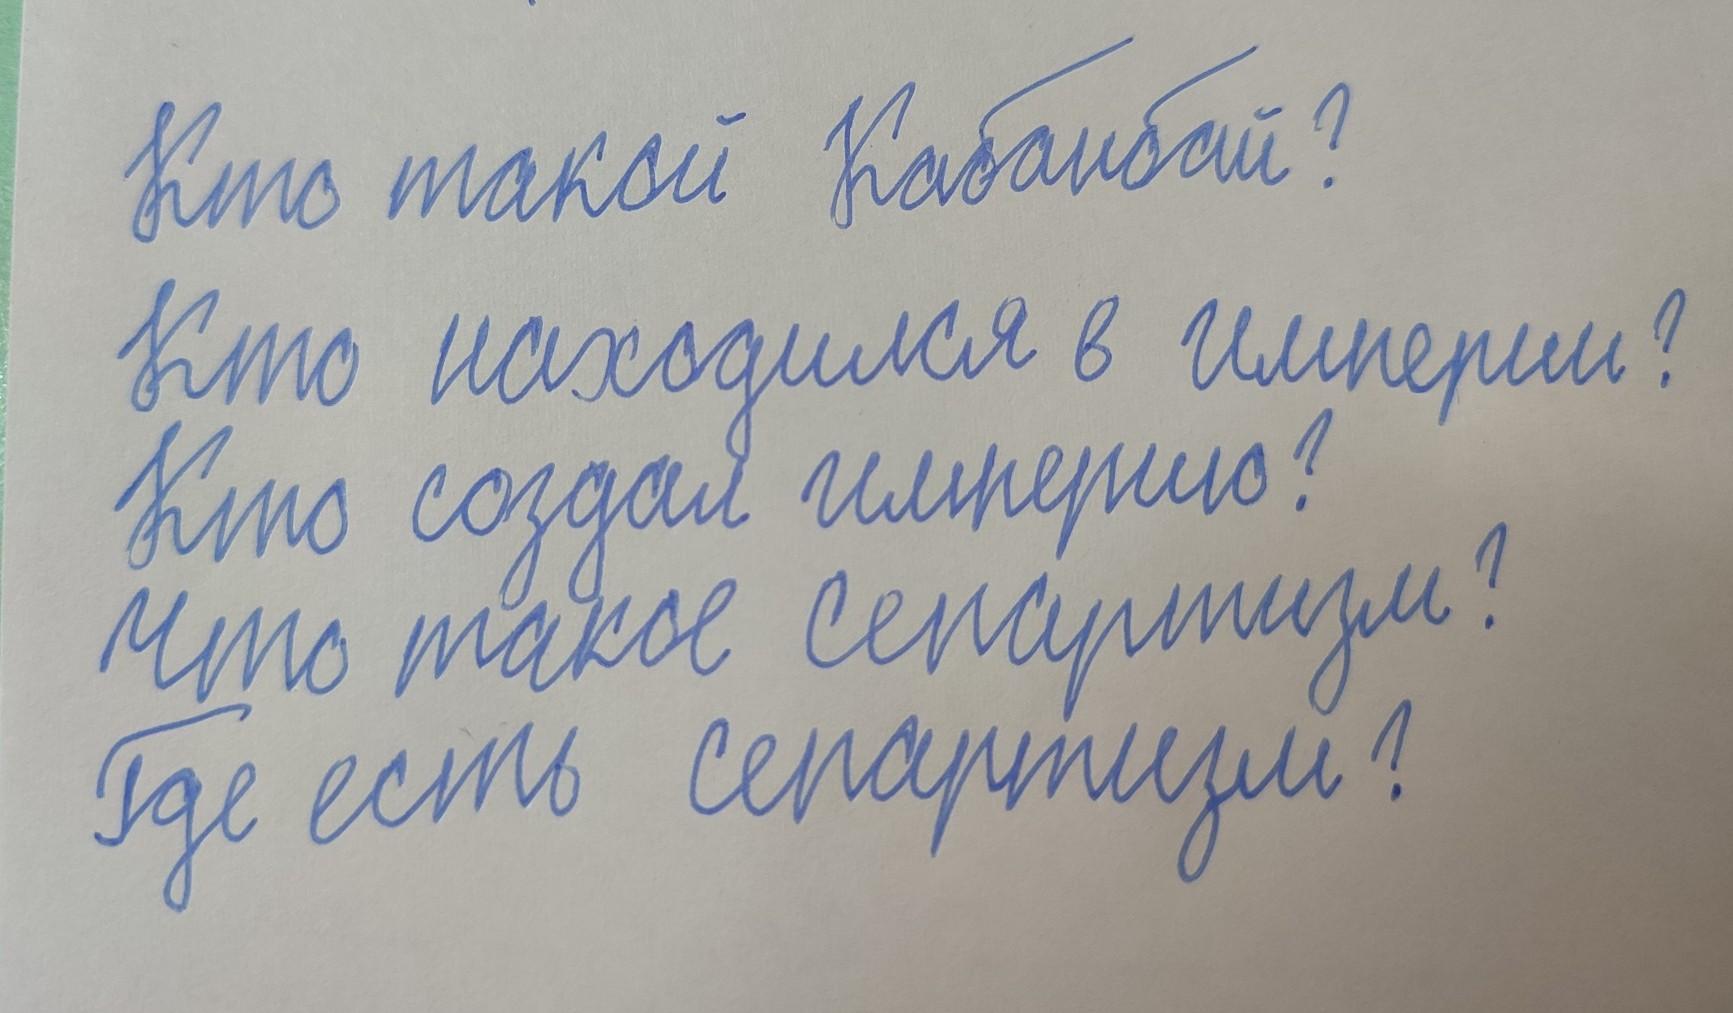 Кто такой Кабанбай?
Кто находился в империи?
Кто создал империю?
Что такое сепартизм?
Где есть сепартизм?